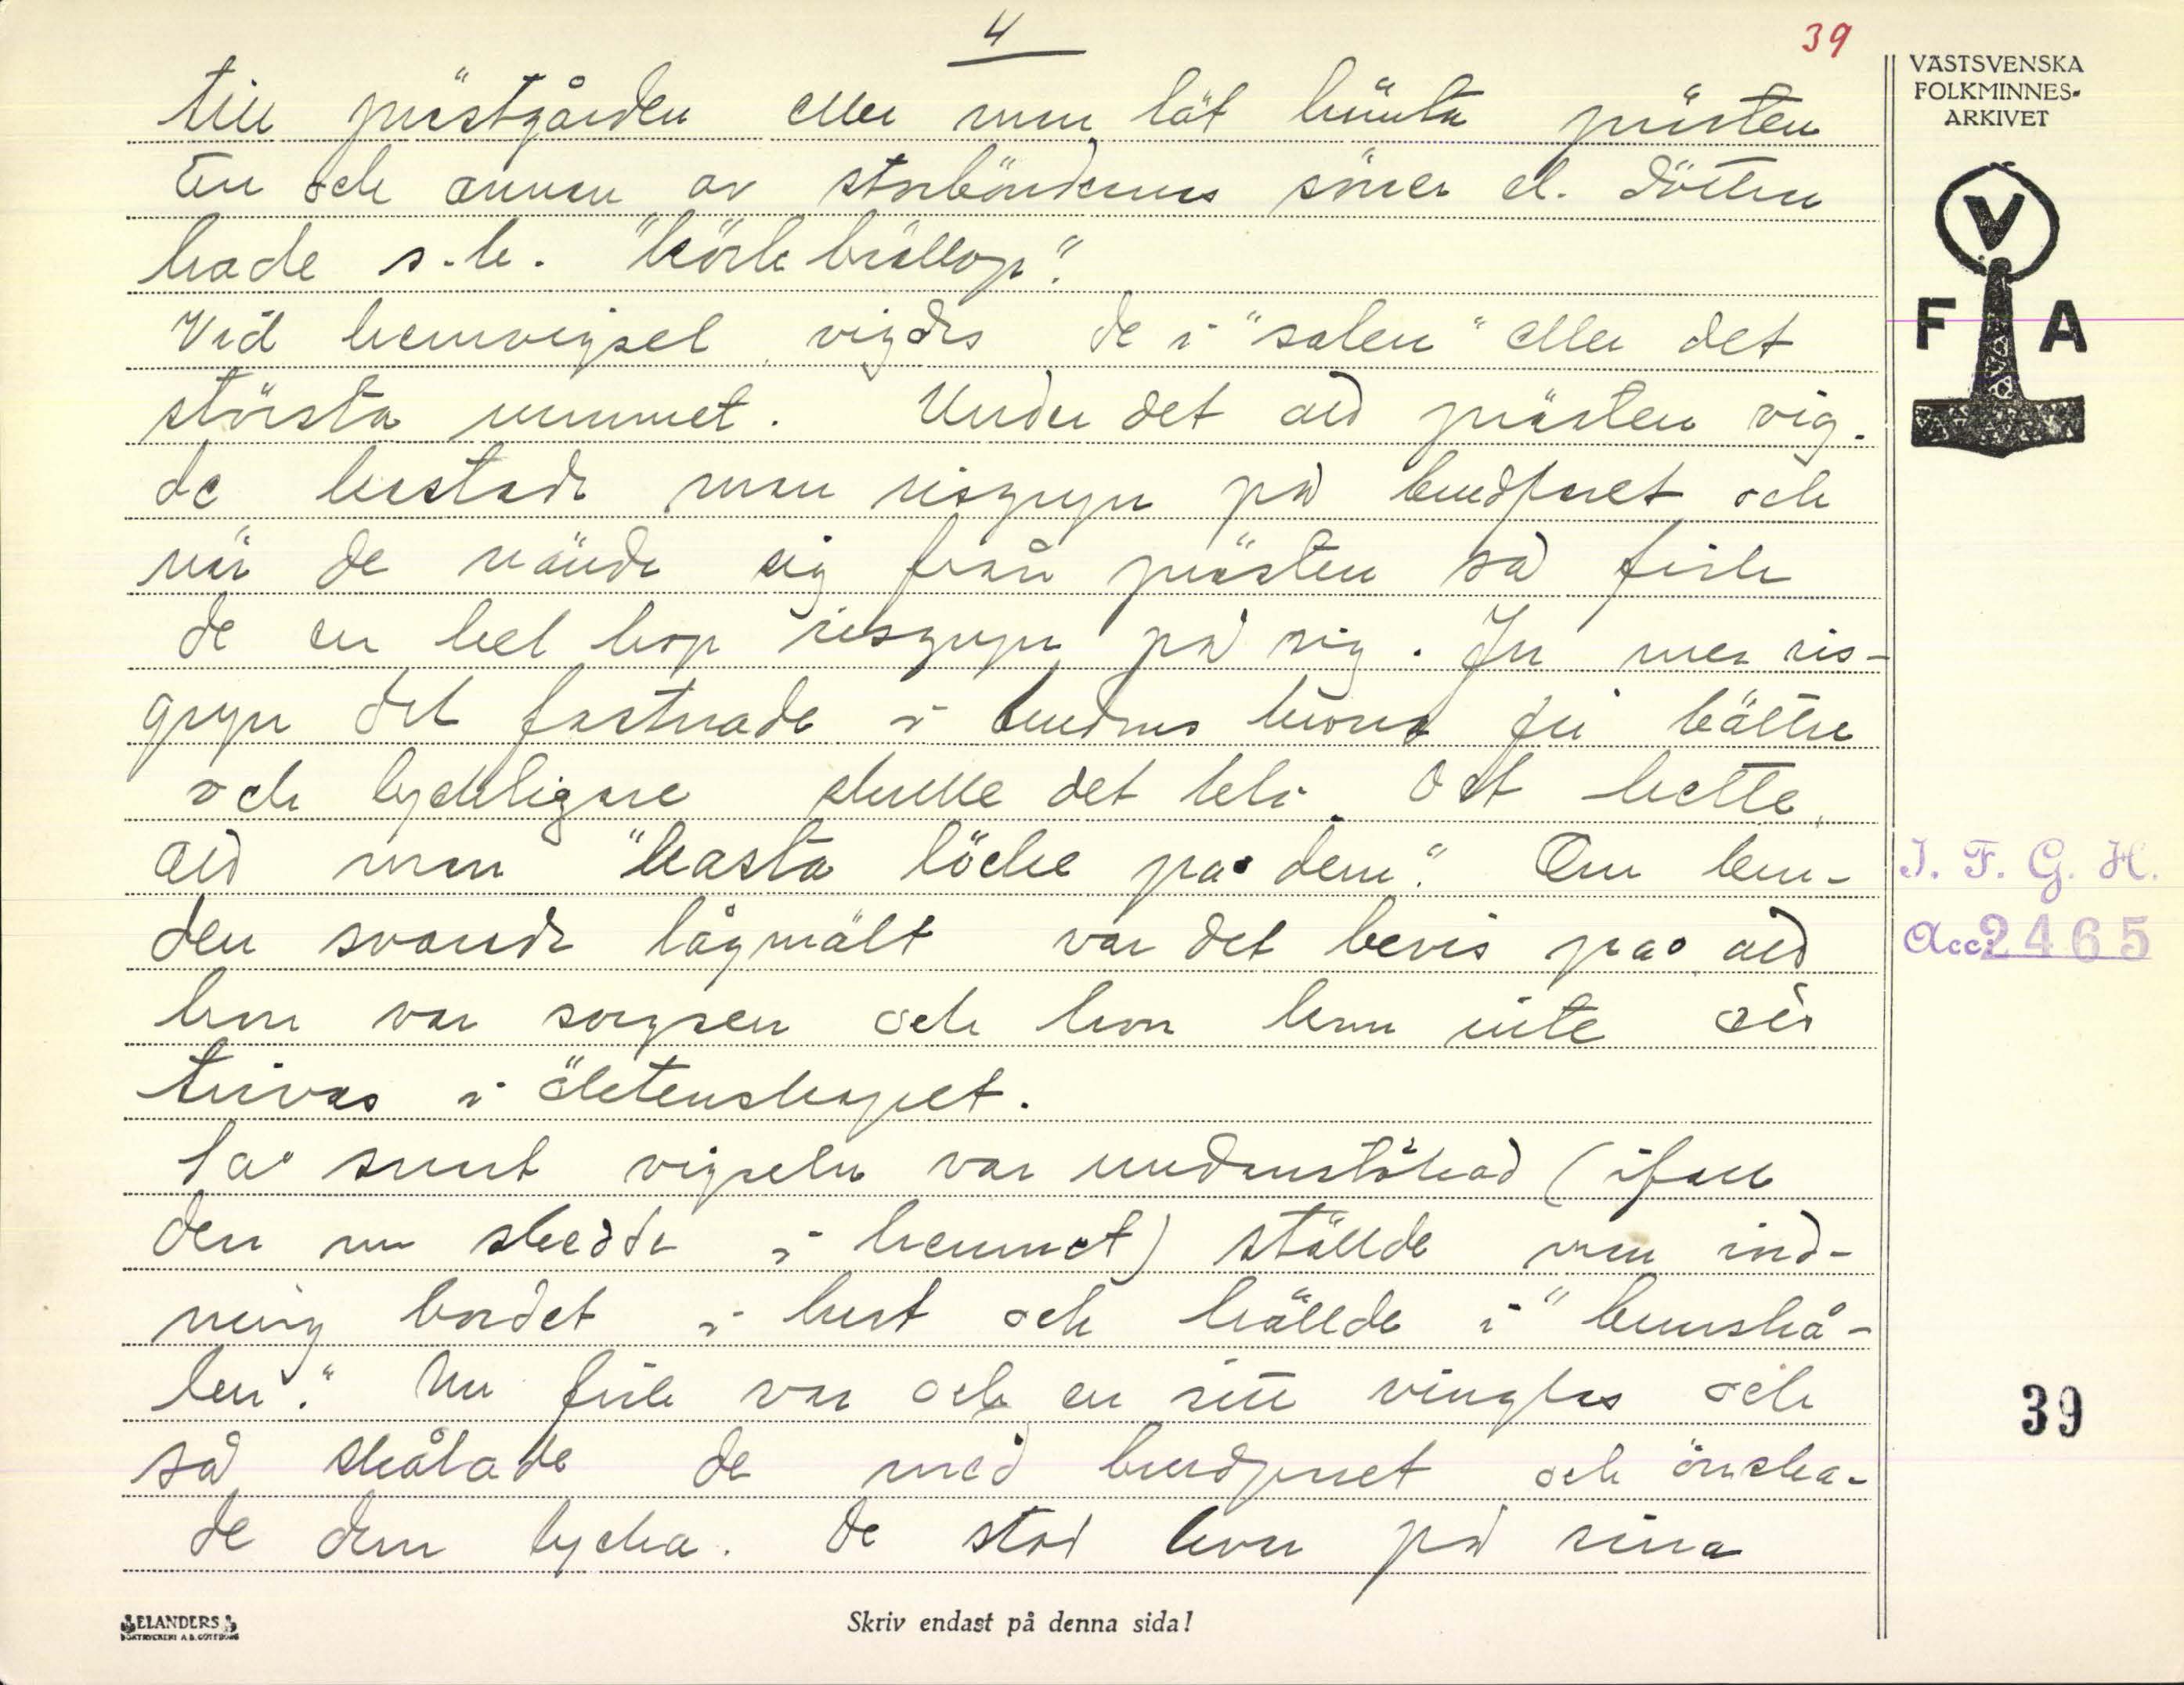 4
39
till prästgården eller man lät hämta prästen
En och annan av storböndernas söner el. döttrar
hade s.k. "körkbrällop".
Vid hemvigsel vigdes de i "salen" eller det
största rummet. Under det att prästen vig-
de kastade man risgryn på brudparet och
när de vände sig från prästen så fick
de en hel hop risgryn på sig. Ju mer ris-
gryn det fastnade i brudens krona ju bättre
och lyckligare skulle det bli. Det hette,
att man "kasta löcke på dem". Om bru-
den svarade lågmält var det bevis på att
hon var sorgsen och hon kunn inte
trivas i äktenskapet.
Så snart vigseln var undanstökad (ifall
den nu skedde i hemmet) ställde man ind-
ning bordet i hast och hällde i "brurskå-
len". Nu fick var och en sitt vinglas och
så skålade de med brudparet och önska-
de dem lycka. De stod kvar på sina
VÄSTSVENSKA
FOLKMINNES-
ARKIVET
V
F A
I. F. G. H.
Acc. 2465
39
ELANDERS
BOKTRYCKERI A.B. GÖTEBORG
Skriv endast på denna sida!